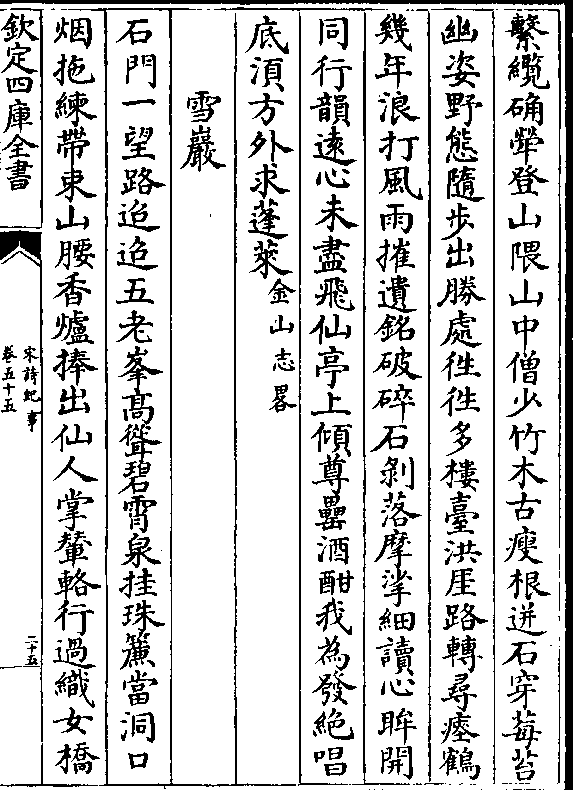 繫纜确犖登山隈山中僧少竹木古瘦根迸石穿莓苔
幽姿野態隨步出勝處徃徃多樓臺洪厓路轉尋瘞鶴
幾年浪打風雨摧遺銘破碎石剝落摩挲細讀心眸開
同行韻逺心未盡飛仙亭上傾尊罍酒酣我為發絶唱
底湏方外求蓬萊金山志畧
雪巖
石門一望路迢迢五老峯髙聳碧霄泉挂珠簾當洞口
烟拖練帶束山腰香爐捧出仙人掌輦輅行過織女橋
欽定四庫全書
宋詩紀事
卷五十五
二十五